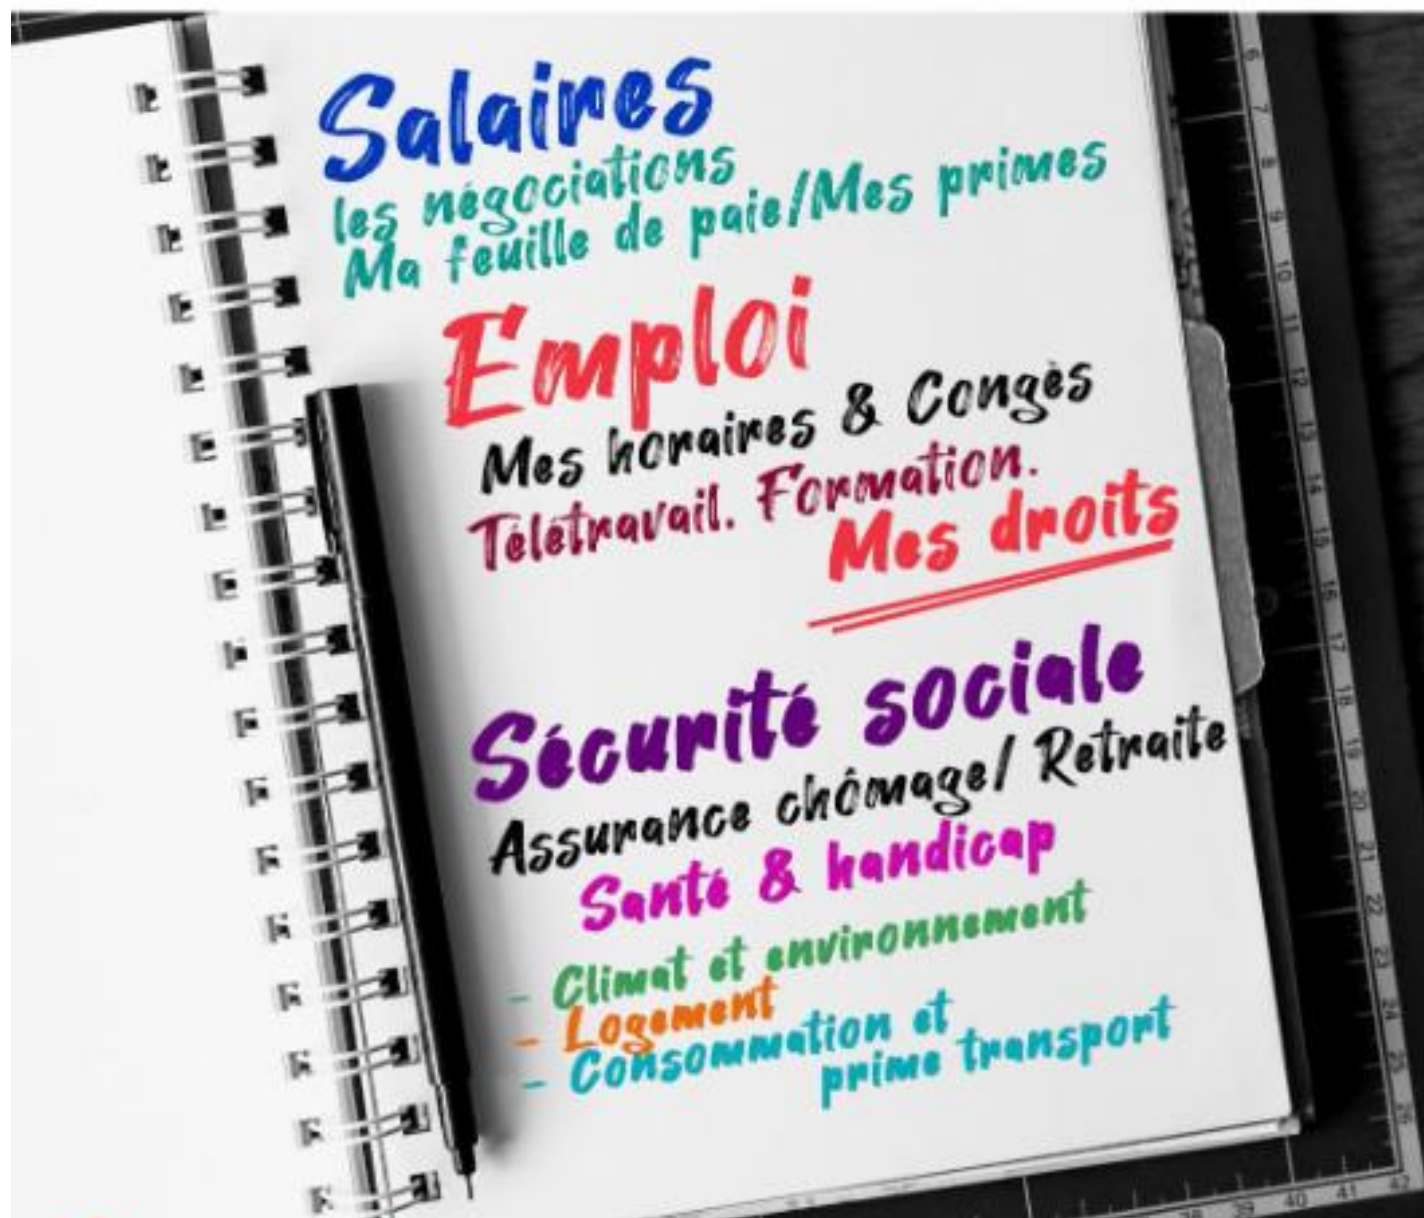 Salaires
les négociations
Ma feuille de paie/Mes primes
Emploi
Mes horaires & Congès
Télétravail. Formation.
Mes droits
Sécurité sociale
Assurance chômage/ Retraite
Santé & handicap
- Climat et environnement
- Logement
- Consommation et
prime transport
6
7
8
9
10
11
12
13
14
15
16
17
18
19
20
21
22
23
24
25
26
39 40 41 42